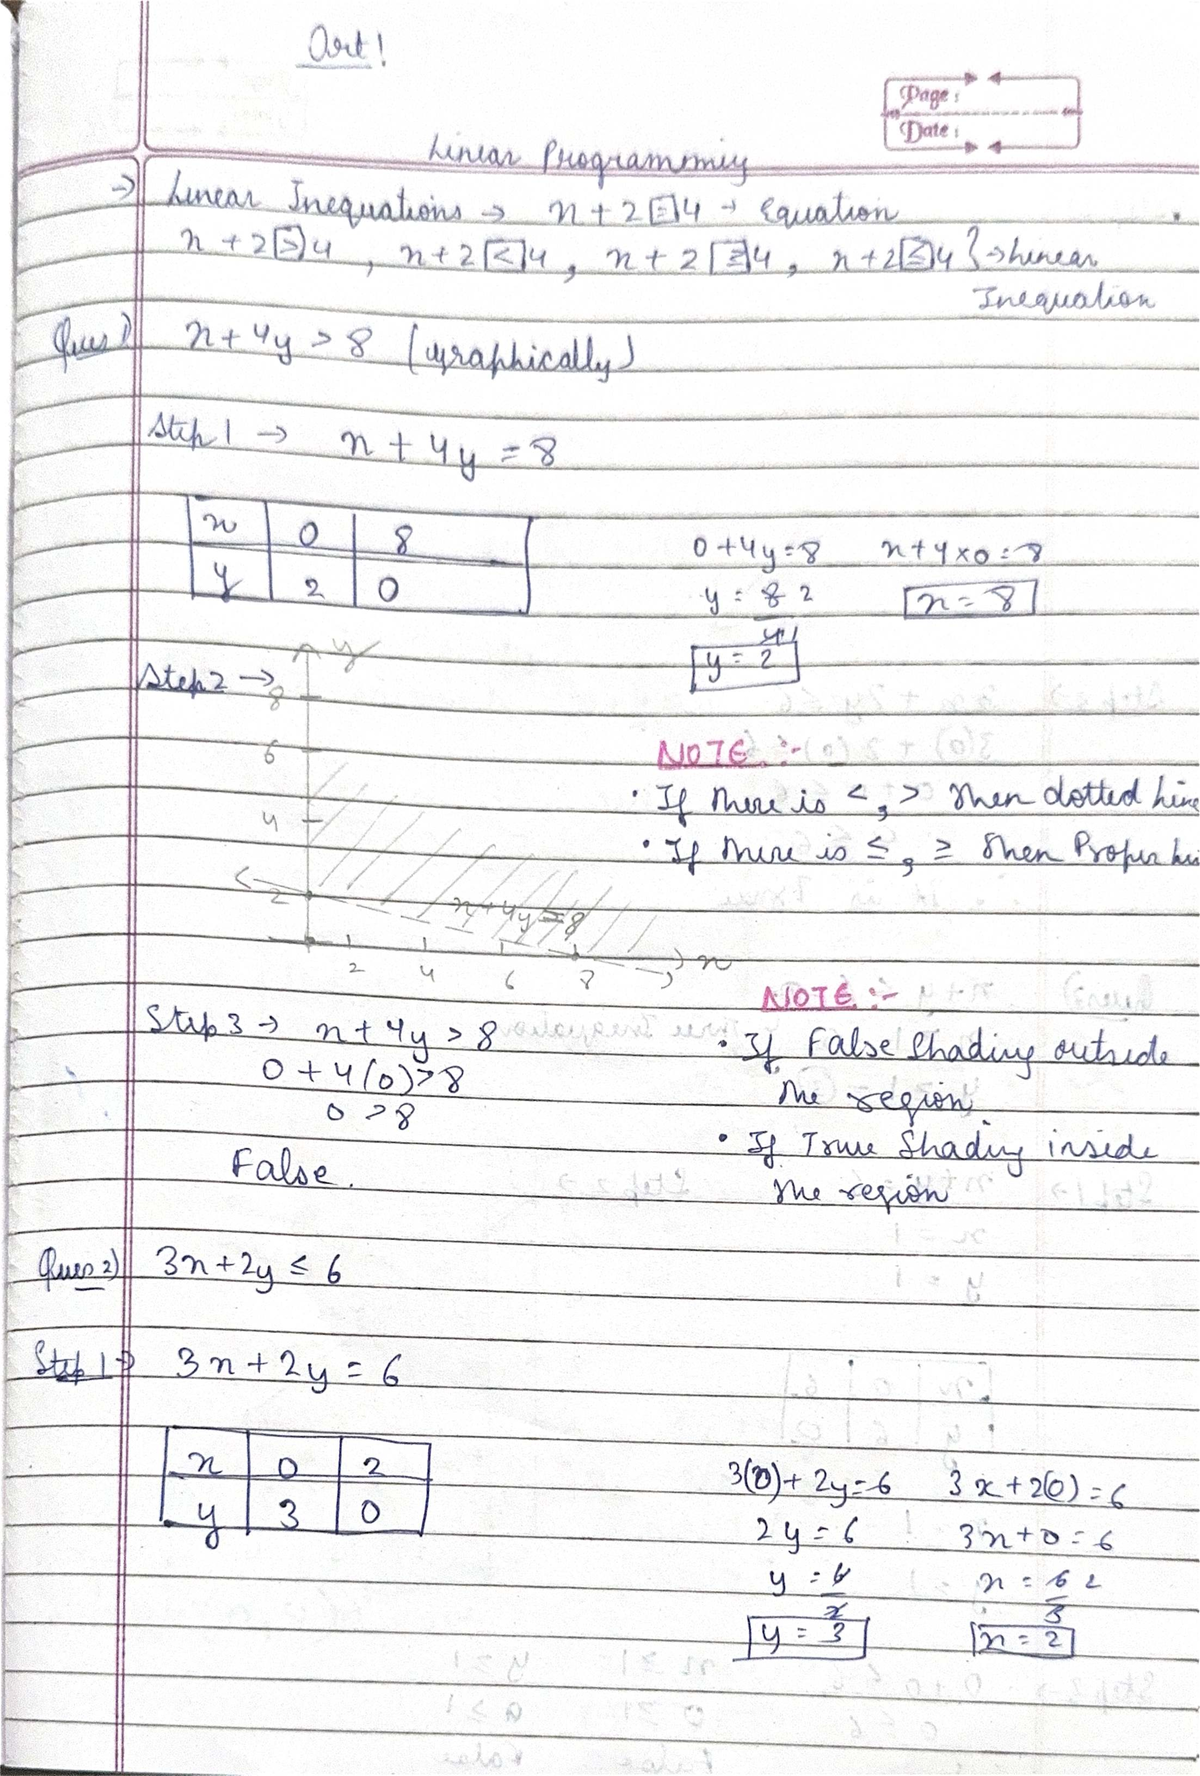 Art!
Page:
Date:
Linear Programming
→ Linear Inequations → x + 2 = 4 → Equation
x + 2 > 4 , x + 2 < 4 , x + 2 ≥ 4 , x + 2 ≤ 4 } → Linear
Inequation
Ques 1) x + 4y > 8 (graphically)
Step 1 → x + 4y = 8
x 0 8
y 2 0
0 + 4y = 8 x + 4 × 0 = 8
y = 8 2 x = 8
4 1
y = 2
Step 2 →
y
8
6
4
2
x + 4y = 8
2 4 6 8
x
NOTE :-
• If there is < , > then dotted line
• If there is ≤ , ≥ then Proper
Step 3 → x + 4y > 8
0 + 4(0) > 8
0 > 8
False.
NOTE :-
• If False Shading outside
the region.
• If True Shading inside
the region
Ques 2) 3x + 2y ≤ 6
Step 1 → 3x + 2y = 6
x 0 2
y 3 0
3(0) + 2y = 6 3x + 2(0) = 6
2y = 6 3x + 0 = 6
y = 6 x = 6 2
2 3
y = 3 x = 2